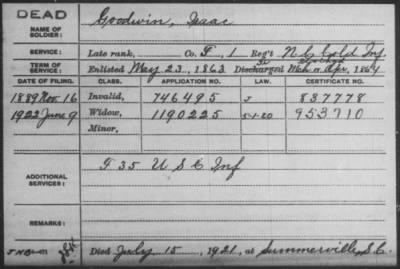 DEAD
NAME OF SOLDIER:
Goodwin, Isaac
SERVICE:
Late rank, Co. F, 1 Reg't N C Cold Inf
TERM OF SERVICE:
Enlisted May 23, 1863 Discharged Apr, 1864
DATE OF FILING. CLASS. APPLICATION NO. LAW. CERTIFICATE NO.
1889 Nov 16 Invalid, 746495 J 837778
1922 June 9 Widow, 1190225 5-1-20 953710
Minor,
ADDITIONAL SERVICES:
F 35 U S C Inf
REMARKS:
Died July 15, 1921, at Summerville, S.C.